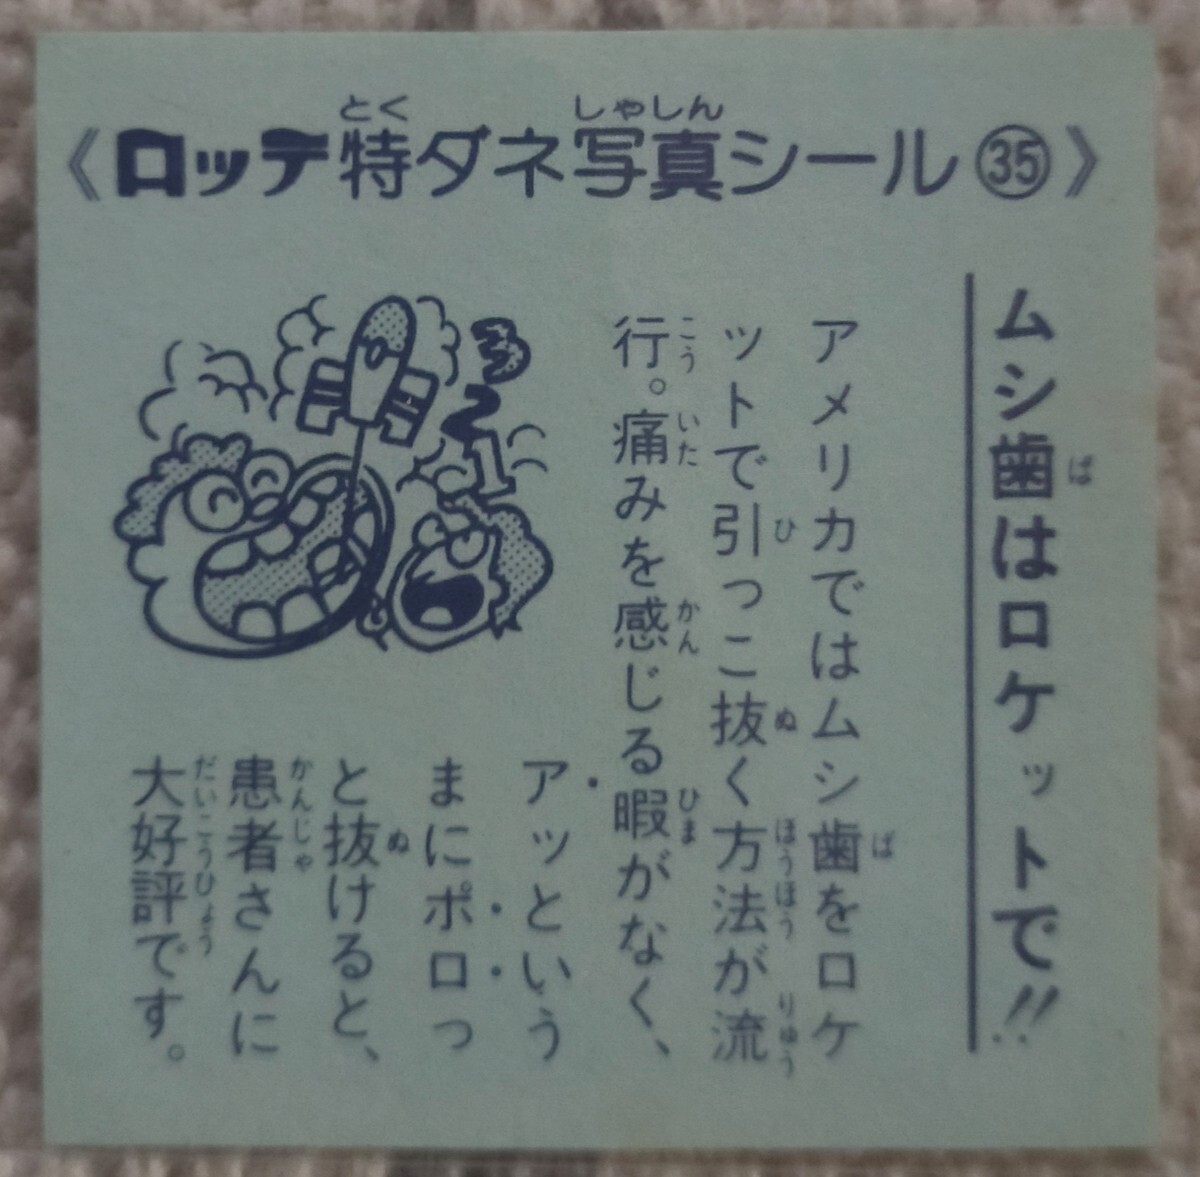 《ロッテ特ダネ写真シール㉟》
ムシ歯はロケットで!!
アメリカではムシ歯をロケ
ットで引っこ抜く方法が流
行。痛みを感じる暇がなく、
アッという
まにポロっ
と抜けると、
患者さんに
大好評です。
3
2
1